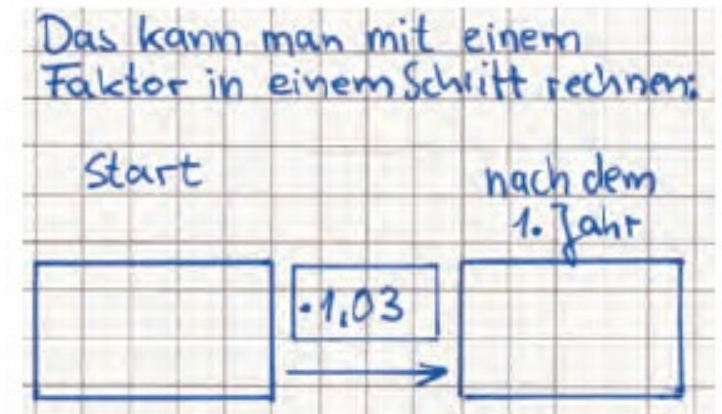 Das kann man mit einem
Faktor in einem Schritt rechnen:
Start
nach dem
1. Jahr
·1,03